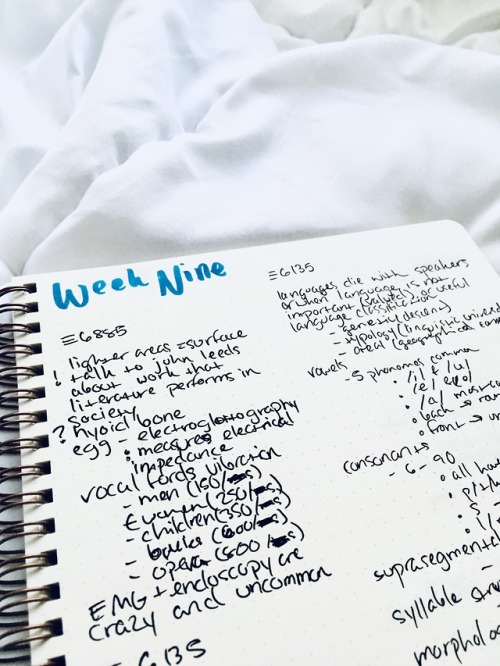 Week Nine
≡6885
lighter areas = surface
! talk to john leeds
about work that
literature performs in
society
? hyoid bone
egg - electroglottography
• measures electrical
impedance
vocal cords vibration
- men (150/
- women (250/
- children (350/
- (600/
- opera (500/
EMG + endoscopy are
crazy and uncommon
≡6135
≡6135
languages die with speakers
or when language is not
important (valued) or useful
language classification
- genetic (descent)
- typology (linguistic
- areal (geographical
vowels
- 5 phonemes common
• /i/ /u/
• /e/ /o/
• /a/ most
• back →
• front →
consonants
- 6-90
• all
• p/t/
• s
suprasegmental
syllable